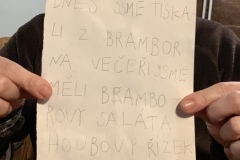 DNES JSME TISKA-
LI Z BRAMBOR
NA VEČEŘI JSME
MĚLI BRAMBO
ROVÝ SALÁT A
HOUBOVÝ ŘÍZEK